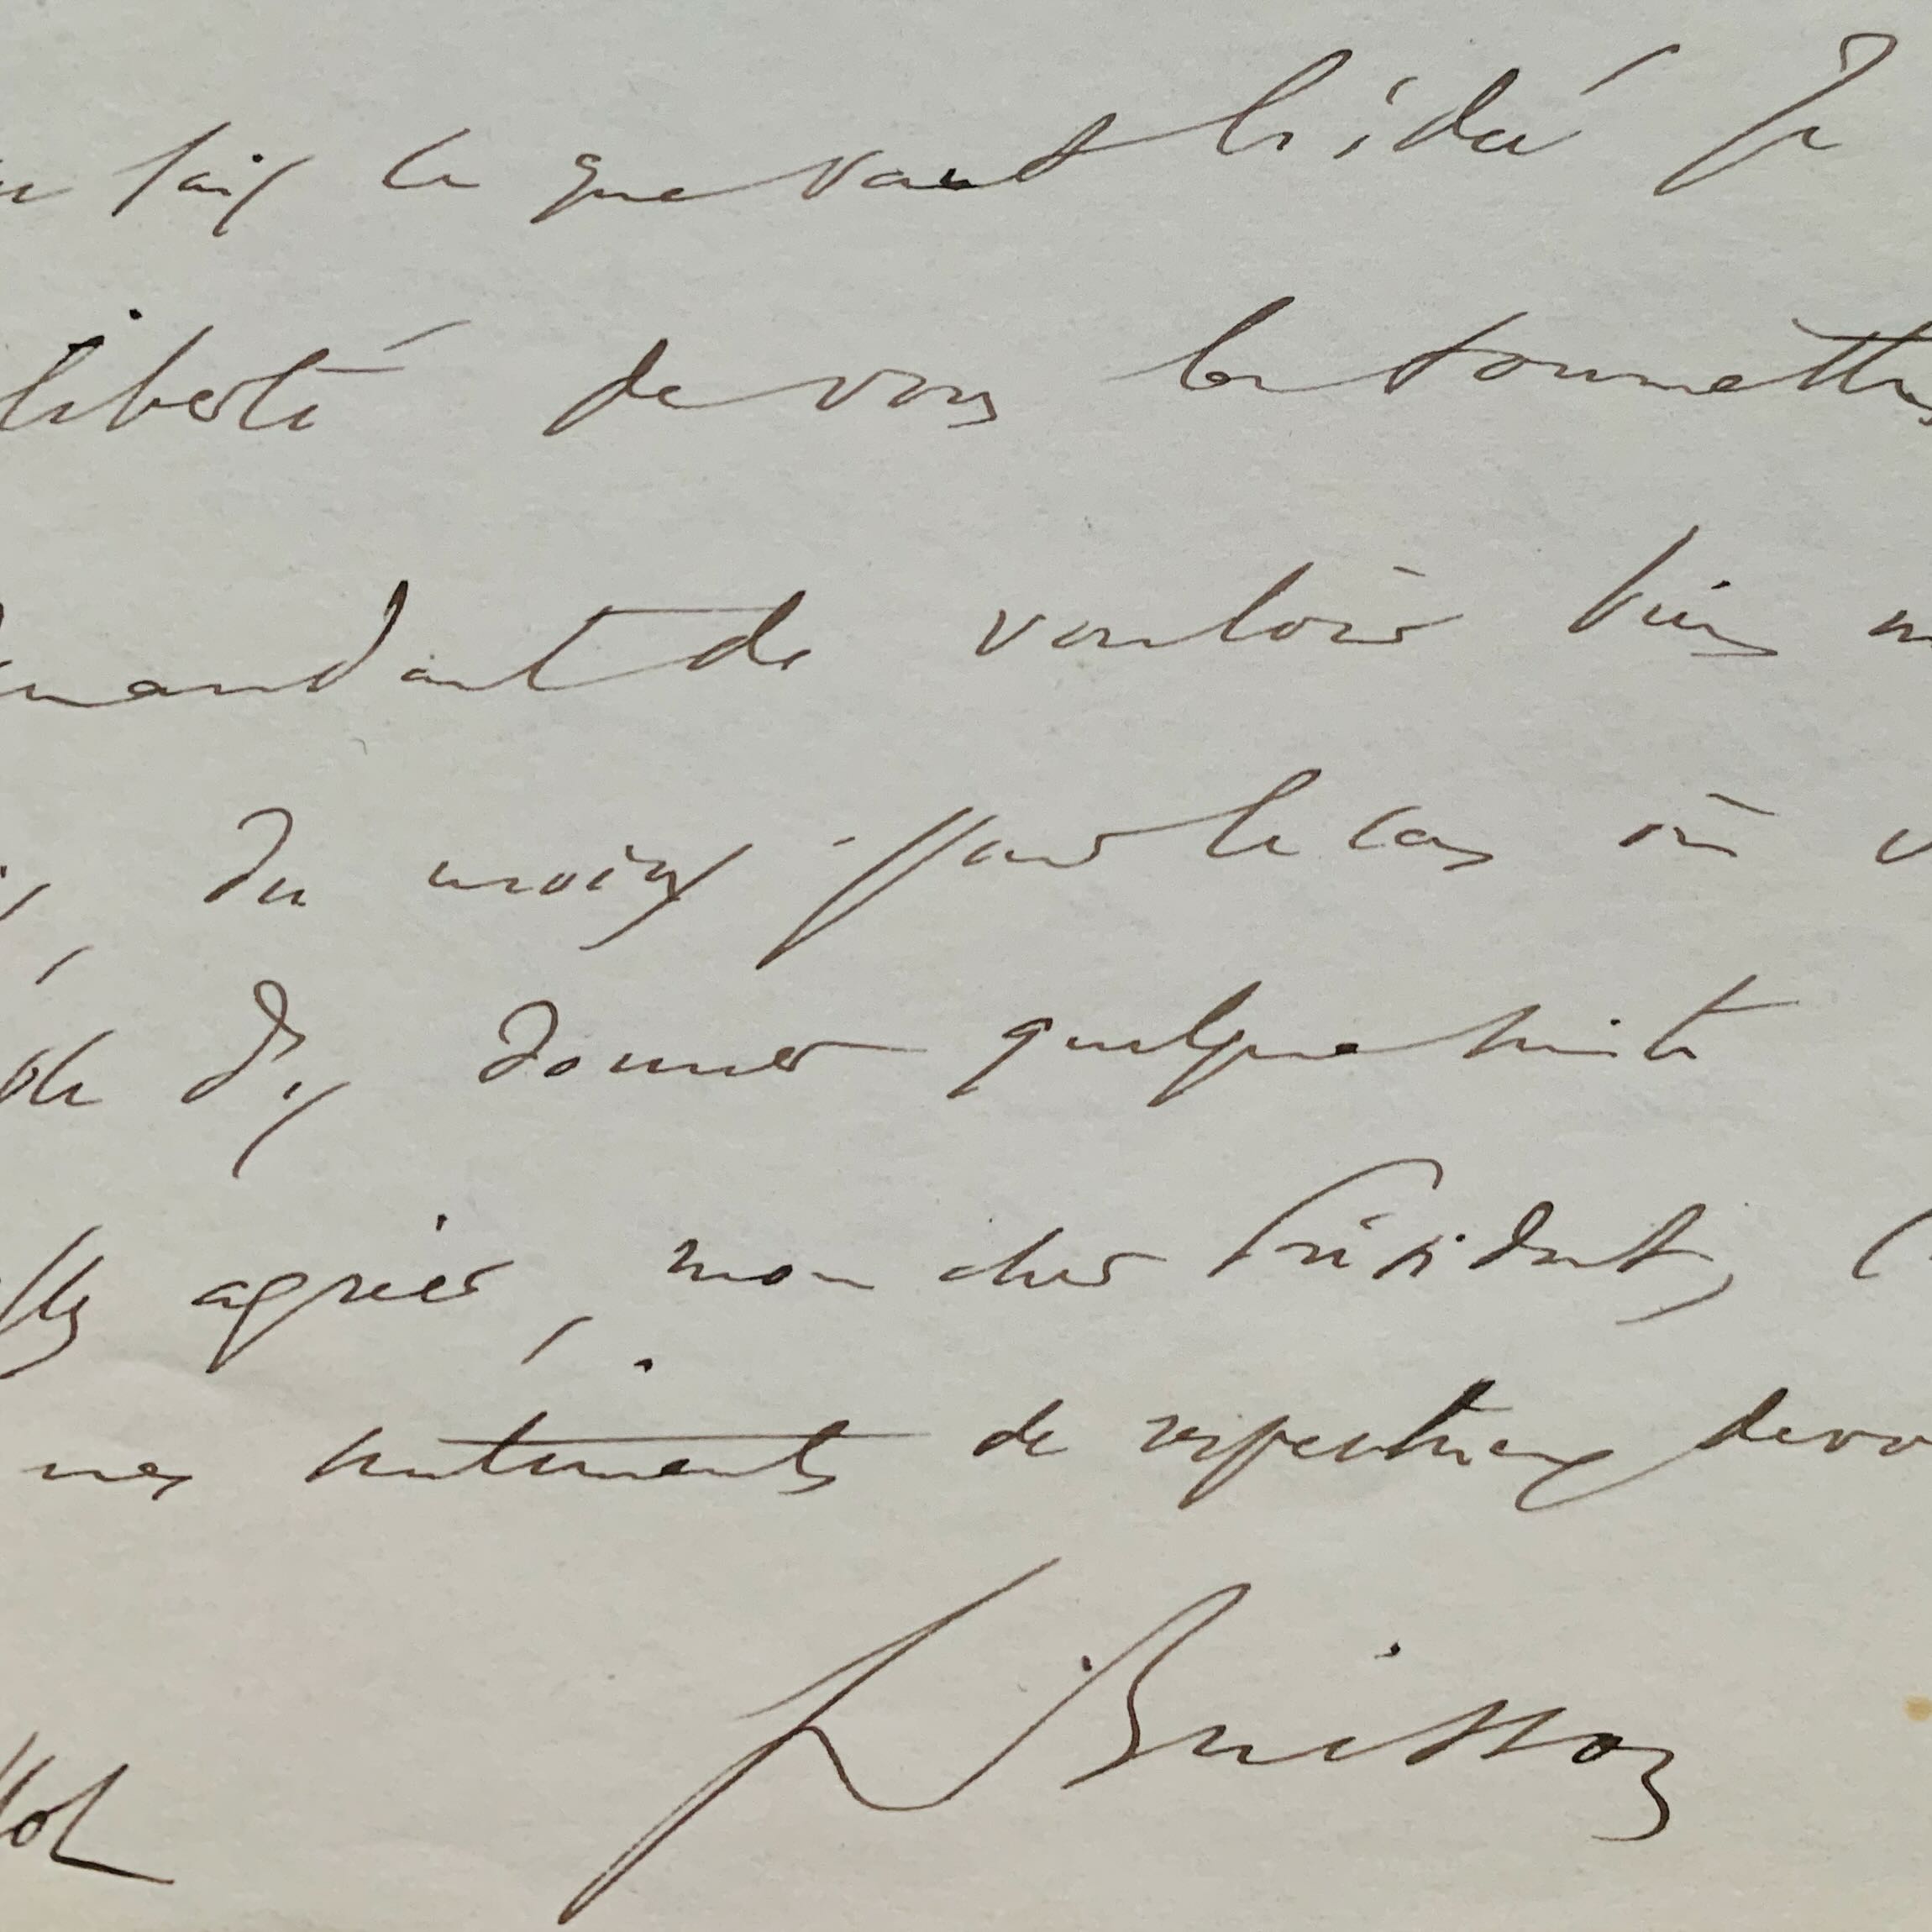 sais ce que vaut l'idée Je
liberté de vous la soumettre
mandant de vouloir bien m
du moins pour le cas où v
d'y donner quelque suite
agréer, mon cher Président, l
mes sentiments de respectueux dévo
Buisson